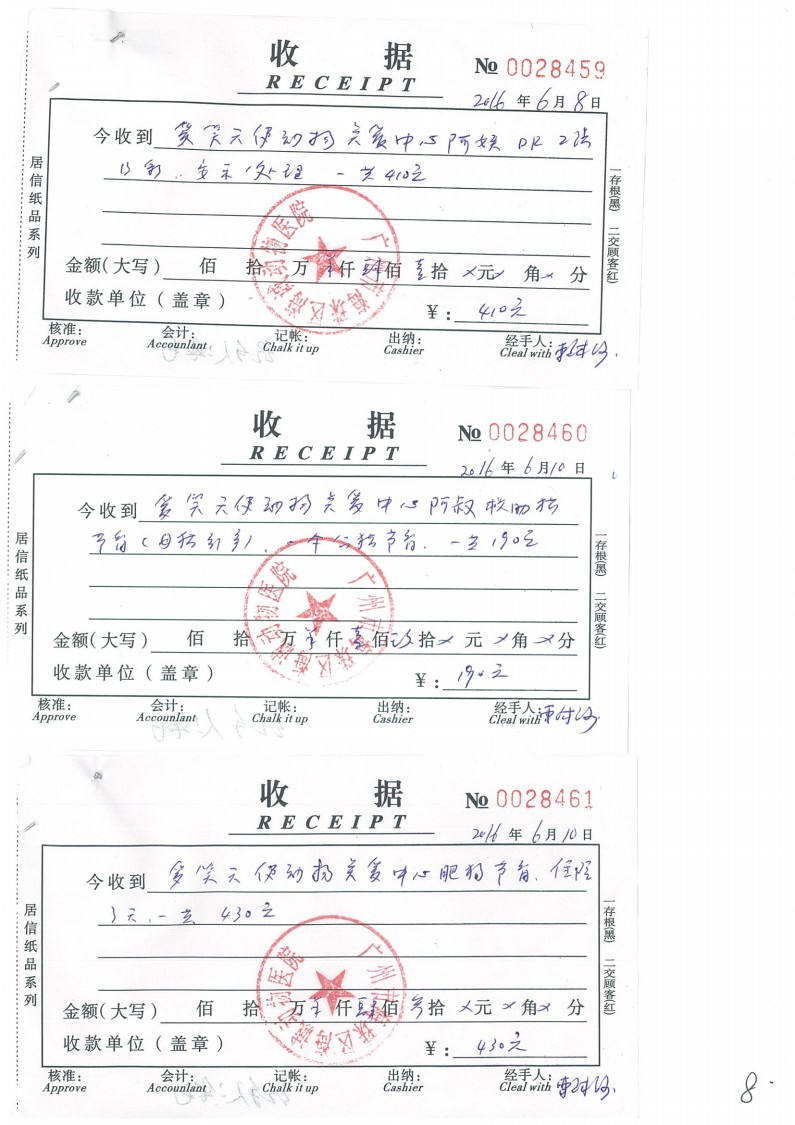 收 据
RECEIPT
№ 0028459
2016 年 6 月 8 日
今收到 笑天使动物关爱中心阿
处理 一共410元
金额(大写) 佰 拾 万 仟 肆佰 壹拾 元 角 分
收款单位(盖章) ¥: 410元
核准: 会计: 记帐: 出纳: 经手人:
Approve Accountlant Chalk it up Cashier Cleal with
居信纸品系列
一存根(黑) 二交顾客(红)
广州市海珠区 动物医院
收 据
RECEIPT
№ 0028460
2016 年 6 月 10 日
今收到 笑天使动物关爱中心阿叔
节育 节育. 一共190元
金额(大写) 佰 拾 万 仟 壹佰 玖拾 元 角 分
收款单位(盖章) ¥: 190元
核准: 会计: 记帐: 出纳: 经手人:
Approve Accountlant Chalk it up Cashier Cleal with
居信纸品系列
一存根(黑) 二交顾客(红)
广州市海珠区 动物医院
收 据
RECEIPT
№ 0028461
2016 年 6 月 10 日
今收到 笑天使动物关爱中心肥 节育、住院
3天、一共 430元
金额(大写) 佰 拾 万 仟 肆佰 叁拾 元 角 分
收款单位(盖章) ¥: 430元
核准: 会计: 记帐: 出纳: 经手人:
Approve Accountlant Chalk it up Cashier Cleal with
居信纸品系列
一存根(黑) 二交顾客(红)
广州市海珠区 动物医院
8